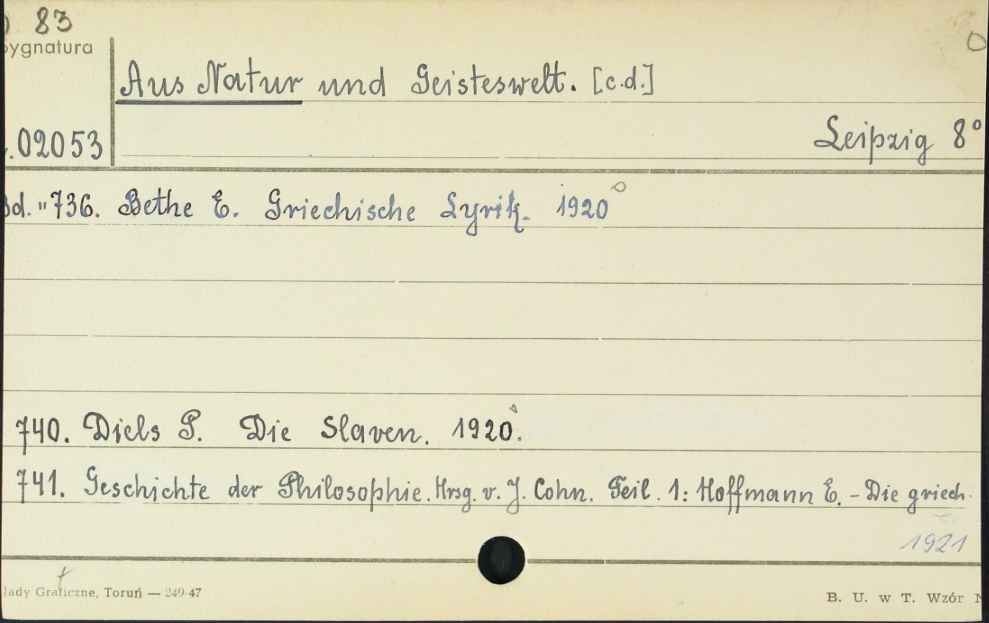 83
ygnatura
Aus Natur und Geisteswelt. [c.d.]
.02053
Leipzig 8°
Bd. "736. Bethe E. Griechische Lyrik. 1920
740. Diels P. Die Slaven. 1920.
741. Geschichte der Philosophie. Hrsg. v. J. Cohn. Teil. 1: Hoffmann E. - Die griech.
1921
łady Graficzne, Toruń — 249-47
B. U. w T. Wzór N